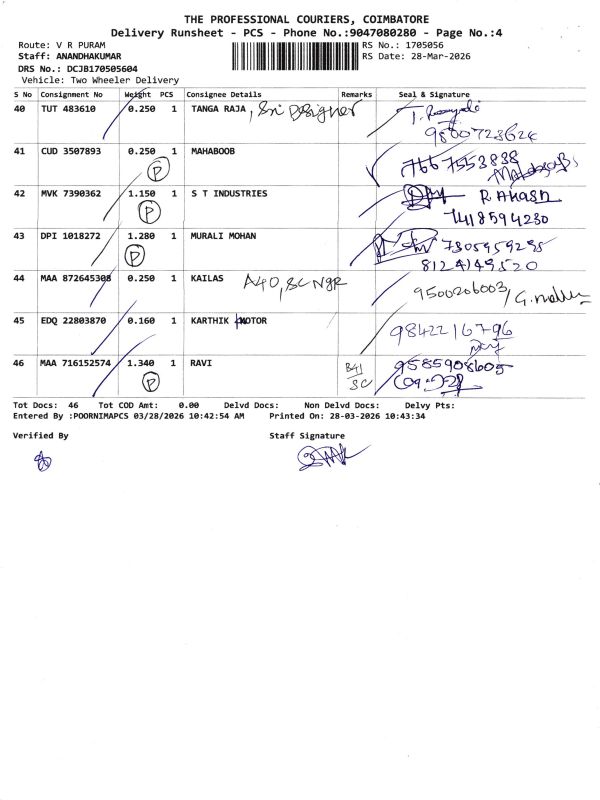 THE PROFESSIONAL COURIERS, COIMBATORE
Delivery Runsheet - PCS - Phone No.:9047080280 - Page No.:4
Route: V R PURAM RS No.: 1705056
Staff: ANANDHAKUMAR RS Date: 28-Mar-2026
DRS No.: DCJB170505604
Vehicle: Two Wheeler Delivery
S No Consignment No Weight PCS Consignee Details Remarks Seal & Signature
40 TUT 483610 0.250 1 TANGA RAJA, Sri Designer
9800723624
41 CUD 3507893 0.250 1 MAHABOOB
P 7667553838
42 MVK 7390362 1.150 1 S T INDUSTRIES R AKASH
P 7418594230
43 DPI 1018272 1.280 1 MURALI MOHAN 7305959295
P 8124149520
44 MAA 872645308 0.250 1 KAILAS A40, SC NGR
9500206003/
45 EDQ 22803870 0.160 1 KARTHIK MOTOR
9842216796
46 MAA 716152574 1.340 1 RAVI B41 9585908605
P SC
Tot Docs: 46 Tot COD Amt: 0.00 Delvd Docs: Non Delvd Docs: Delvy Pts:
Entered By :POORNIMAPCS 03/28/2026 10:42:54 AM Printed On: 28-03-2026 10:43:34
Verified By Staff Signature